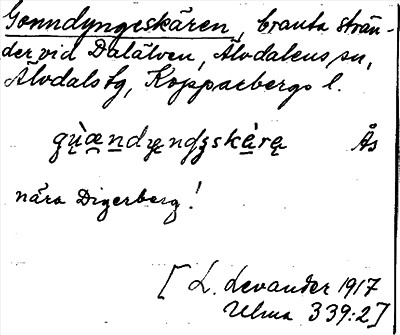 Gonndyngeskären, branta strän-
der vid Dalälven, Älvdalens sn,
Älvdals tg, Kopparbergs l.
gụ̀ændyndʒskàrą Ås
nära Digerberg!
[L. Levander 1917
Ulma 339:2]